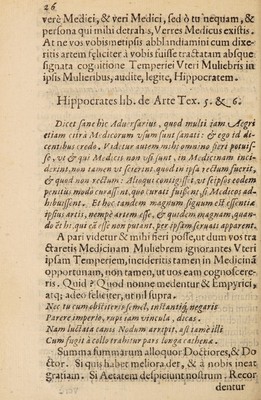 26
verè Medici, & veri Medici, sed ò tu nequam, &
persona qui mihi detrahis, Verres Medicus existis.
At ne vos vobismetipsis abblandiamini cum dixe-
ritis artem feliciter à vobis fuisse tractatam absque
signata cognitione Temperiei Vteri Muliebris in
ipsis Mulieribus, audite, legite, Hippocratem.
Hippocrates lib. de Arte Tex. 5. & 6.
Dicet sanè hic Aduersarius, quod multi iam Aegri
etiam citrà Medicorum vsum sunt sanati: & ego id di-
centibus credo. Videtur autem mihi omnino fieri potuis-
se, vt & qui Medicis non vsi sunt, in Medicinam inci-
derint, non tamen vt scierint, quod in ipsa rectum fuerit,
& quod non rectum: Alioqui contigisset, vt seipsos eodem
penitus modo curassent, quo curati fuissent, si Medicos ad-
hibuissent. Et hoc tandem magnum signum est essentiæ
ipsius artis, nempè artem esse, & quidem magnam, quan-
do & hi, qui eâ esse non putant, per ipsam seruati apparent.
A pari videtur & mihi fieri posse, vt dum vos tra
ctaretis Medicinam Muliebrem ignorantes Vteri
ipsam Temperiem, incideritis tamen in Medicinã
opportunam, non tamen, vt uos eam cognoscere-
ris. Quid? Quod nonne medentur & Empyrici,
atq; adeo feliciter, ut nil supra.
Nec tu cum obstiteris semel, instantiq; negaris
Parere imperio, rupi iam vincula, dicas.
Nam luctata canis Nodum arripit, ast tamè illi
Cum fugit à collo trahitur pars longa cathenæ.
Summa summarum alloquor Doctiores, & Do
ctor. Si quis habet meliora det, & à nobis ineat
gratiam. Si Aetatem despiciunt nostram. Recor
dentur